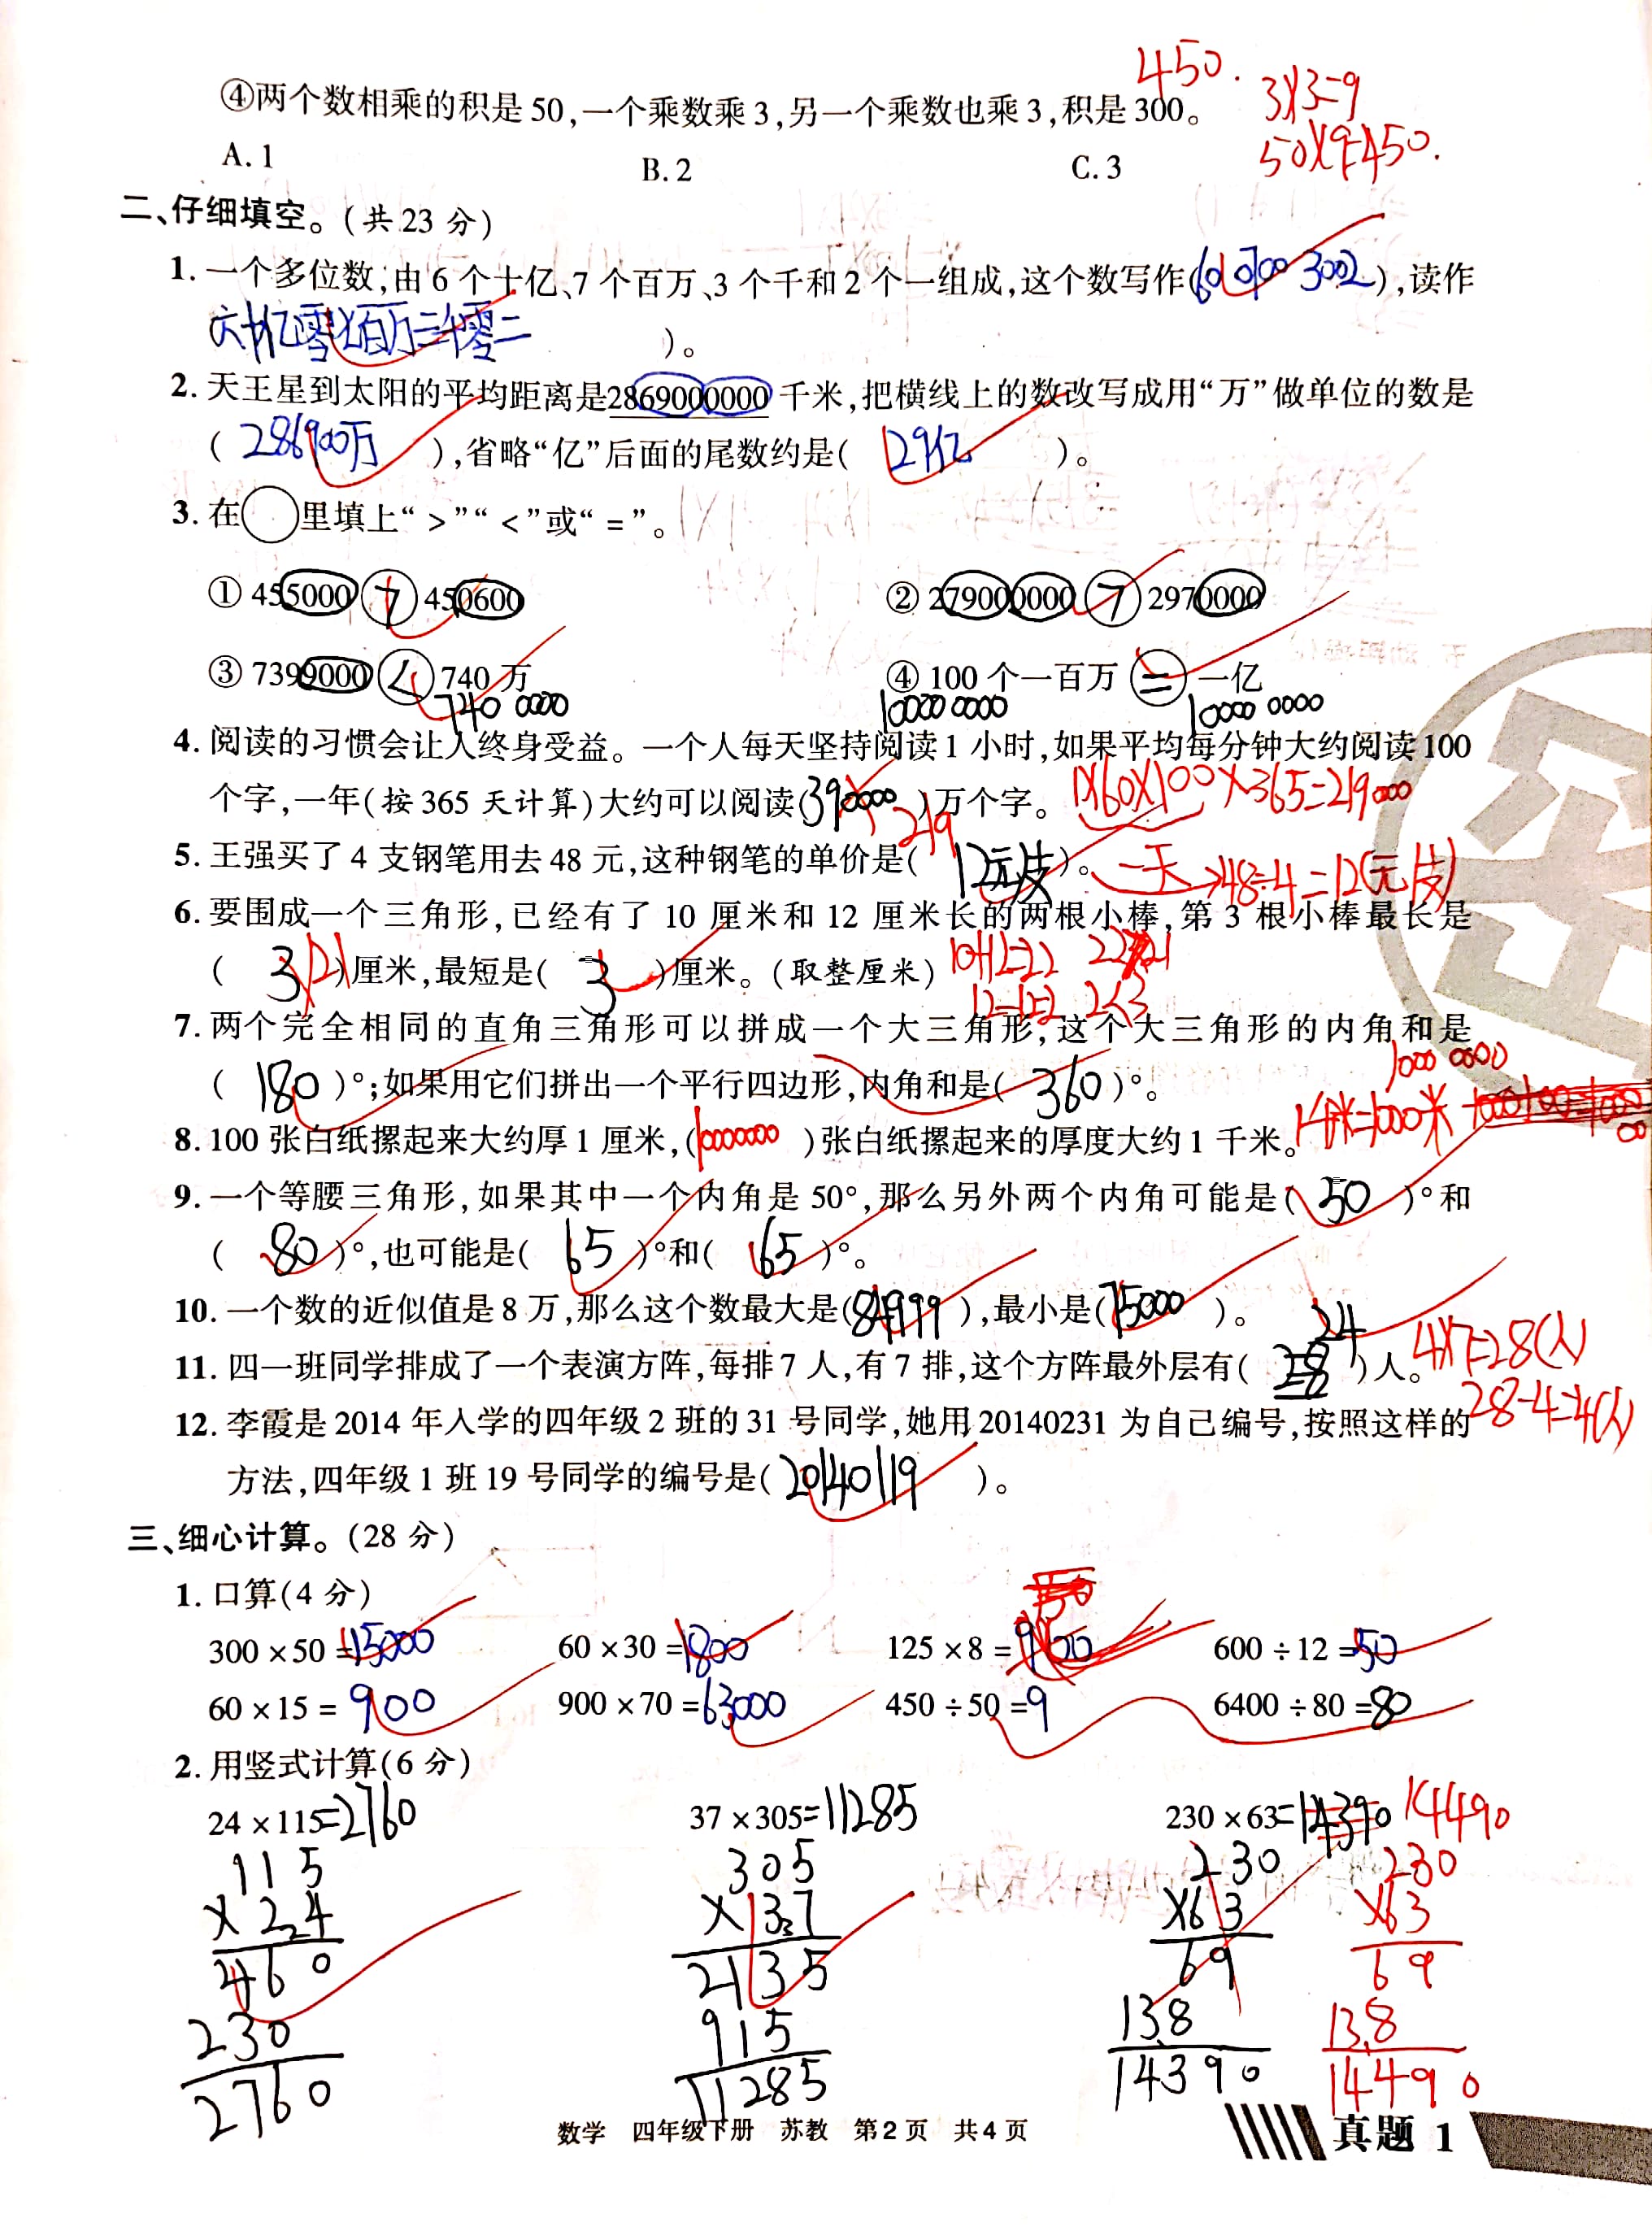 450.
④两个数相乘的积是50,一个乘数乘3,另一个乘数也乘3,积是300。 3×3=9
50×9=450.
A.1 B.2 C.3
二、仔细填空。(共23分)
1. 一个多位数,由6个十亿、7个百万、3个千和2个一组成,这个数写作(6007003002),读作
六十亿零七百万三千零二 )。
2. 天王星到太阳的平均距离是2869000000千米,把横线上的数改写成用“万”做单位的数是
(286900万),省略“亿”后面的尾数约是(29亿)。
3. 在○里填上“>”“<”或“=”。
① 455000 > 450600 ② 279000000 > 2970000
③ 7399000 < 740万 ④ 100个一百万 = 一亿
740 0000 10000 0000 10000 0000
4. 阅读的习惯会让人终身受益。一个人每天坚持阅读1小时,如果平均每分钟大约阅读100
个字,一年(按365天计算)大约可以阅读(390000)万个字。 1×60×100×365=219000
219
5. 王强买了4支钢笔用去48元,这种钢笔的单价是(12元/支)。 一天 48÷4=12(元/支)
6. 要围成一个三角形,已经有了10厘米和12厘米长的两根小棒,第3根小棒最长是
( 3 21)厘米,最短是( 3 )厘米。(取整厘米) 10+12=22 22>21
2<3
7. 两个完全相同的直角三角形可以拼成一个大三角形,这个大三角形的内角和是
( 180 )°;如果用它们拼出一个平行四边形,内角和是( 360 )°。
1000 0000
8. 100张白纸摞起来大约厚1厘米,(10000000)张白纸摞起来的厚度大约1千米。 1千米=1000米
9. 一个等腰三角形,如果其中一个内角是50°,那么另外两个内角可能是( 50 )°和
( 80 )°,也可能是( 65 )°和( 65 )°。
10. 一个数的近似值是8万,那么这个数最大是(84999),最小是(75000)。
24
11. 四一班同学排成了一个表演方阵,每排7人,有7排,这个方阵最外层有( 28 )人。 4×7=28(人)
12. 李霞是2014年入学的四年级2班的31号同学,她用20140231为自己编号,按照这样的
方法,四年级1班19号同学的编号是(20140119)。
三、细心计算。(28分)
1. 口算(4分)
300×50=15000 60×30=1800 125×8=900 600÷12=50
60×15=900 900×70=63000 450÷50=9 6400÷80=80
2. 用竖式计算(6分)
24×115=2760 37×305=11285 230×63=14390 14490
115 305 230 230
×24 ×37 ×63 ×63
460 2135 69 69
230 915 138 138
2760 11285 14390 14490
数学 四年级下册 苏教 第2页 共4页
真题1